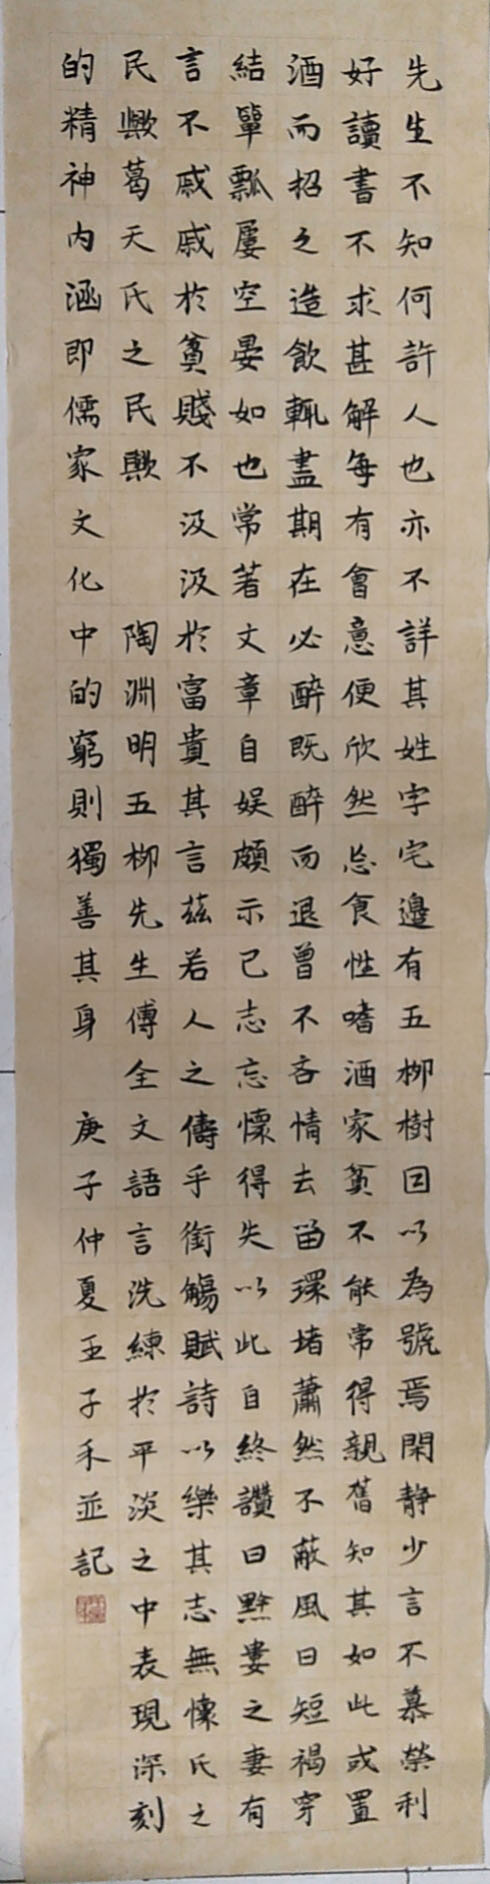 先生不知何許人也亦不詳其姓字宅邊有五柳樹因以為號焉閑静少言不慕榮利
好讀書不求甚解每有會意便欣然忘食性嗜酒家貧不能常得親舊知其如此或置
酒而招之造飲輒盡期在必醉既醉而退曾不吝情去留環堵蕭然不蔽風日短褐穿
結簞瓢屢空晏如也常著文章自娱頗示己志忘懷得失以此自終讚曰黔婁之妻有
言不戚戚於貧賤不汲汲於富貴其言茲若人之儔乎銜觴賦詩以樂其志無懷氏之
民歟葛天氏之民歟 陶淵明五柳先生傳全文語言洗練於平淡之中表現深刻
的精神内涵即儒家文化中的窮則獨善其身 庚子仲夏王子禾並記